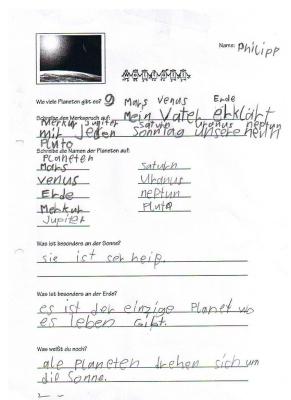 Name: PhiLiPP
Wie viele Planeten gibt es? 9 Mars Venus Erde
Schreibe den Merkspruch auf: Mein Vater erklärt
Merkur Jupiter Saturn Uranus neptun
mir jeden Sonntag unsere neun
Pluto
Schreibe die Namen der Planeten auf:
Planeten
Mars Saturn
Venus Uranus
Erde neptun
Merkur Pluto
Jupiter
Was ist besonders an der Sonne?
sie ist ser heiß.
Was ist besonders an der Erde?
es ist der einzige Planet wo
es leben gibt.
Was weißt du noch?
ale Planeten drehen sich um
die Sonne.